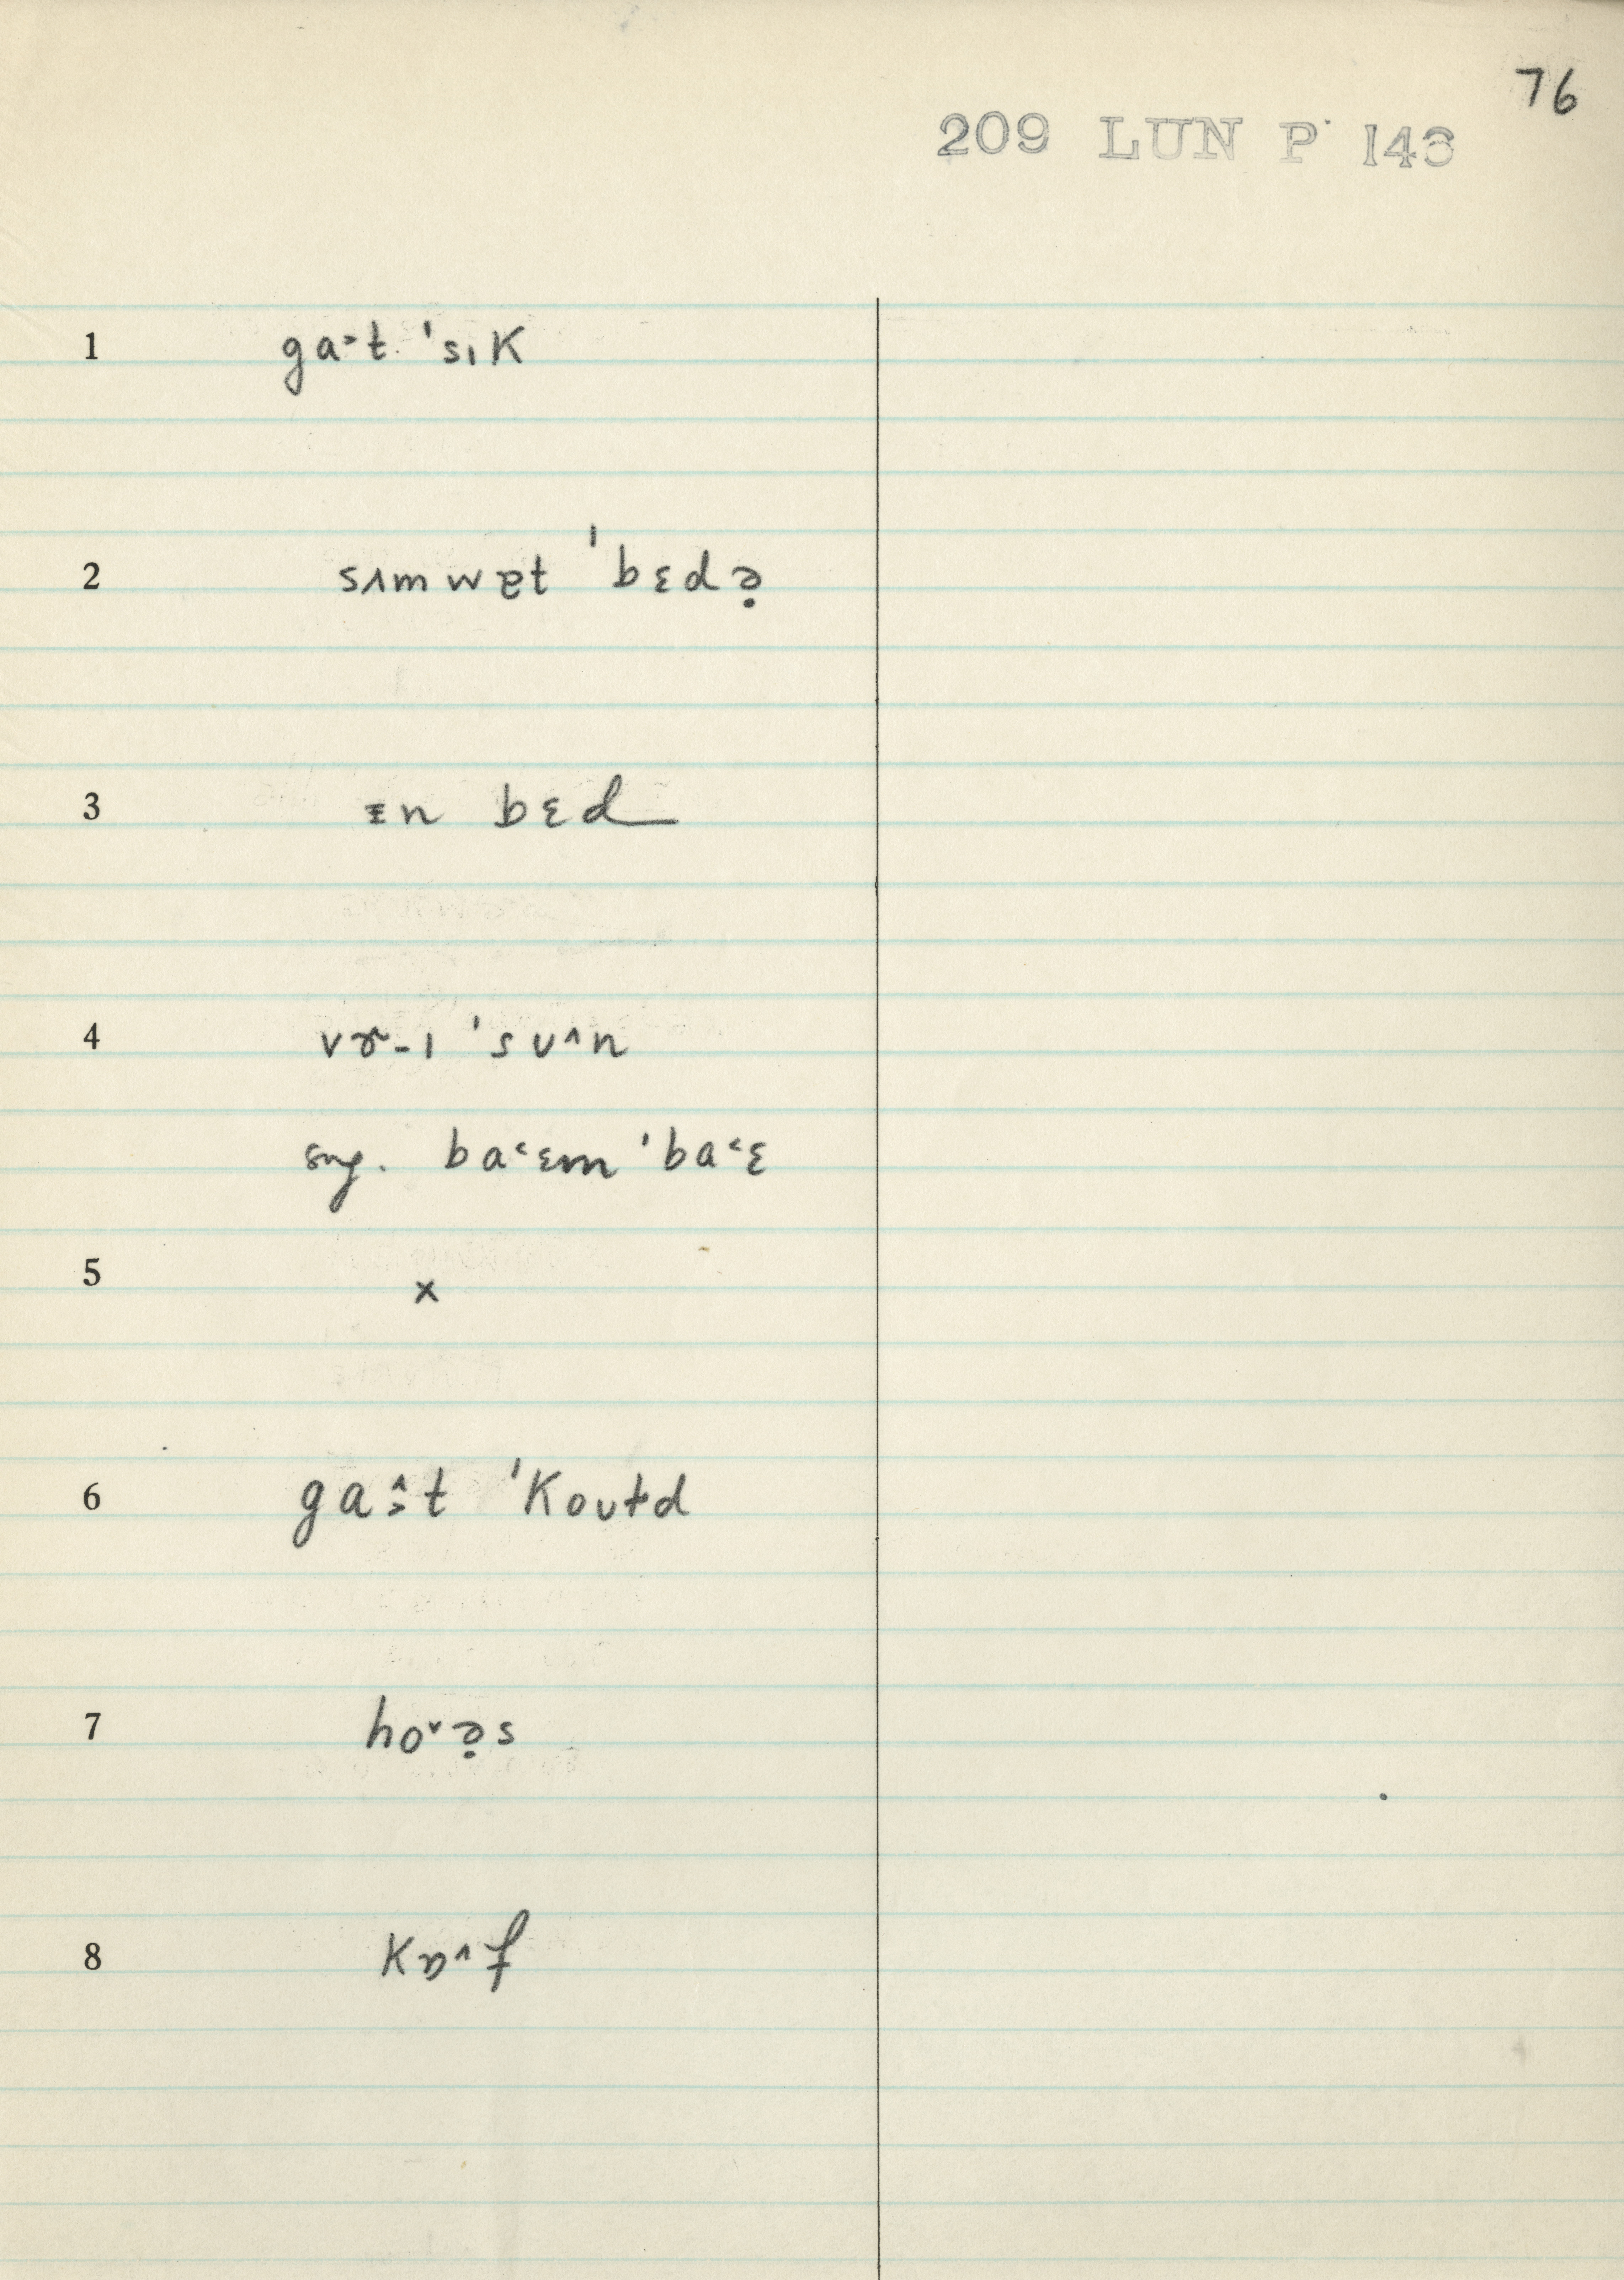 76
209 LUN P 143
1 ga˃t ˈsɪK
2 sʌmwɐt ˈbɛdə̣
3 ɪn bɛd
4 ˈsʊ^n
sug. ba˂ɛm ˈba˂ɛ
5 x
6 ga˃̂t ˈKoʊtd
7 ho˅ə̣s
8 Kɒ^f